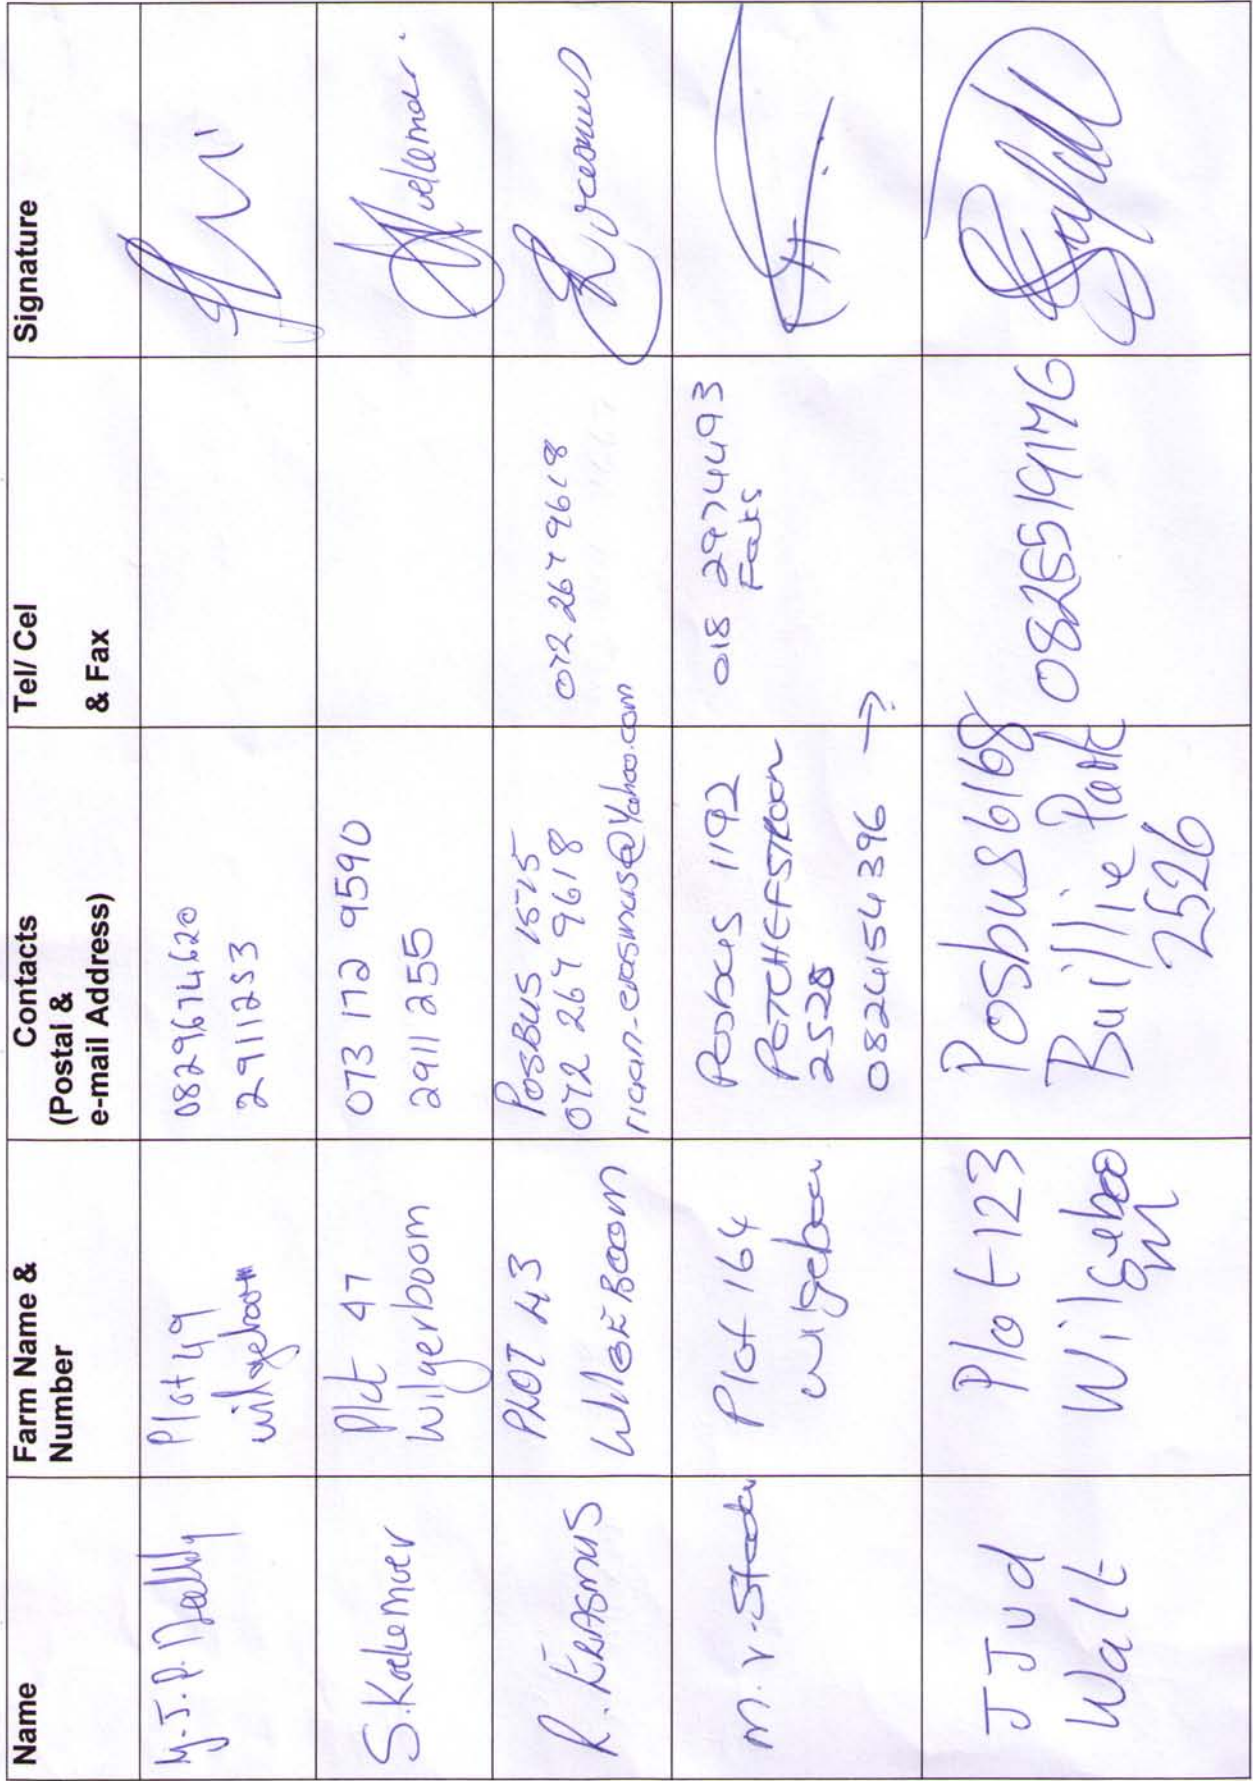 Name
Farm Name &
Number
Contacts
(Postal &
e-mail Address)
Tel/ Cel
& Fax
Signature
Plot 49
wilgeboom
0829674620
2911253
S. Koekemoer
Plot 47
Wilgerboom
073 172 9590
2911 255
R. ERASMUS
PLOT 43
WILGEBOOM
POSBUS 1575
072 267 9618
riaan-erasmus@yahoo.com
072 267 9618
M. V. Staden
Plot 164
Wilgeboom
Posbus 1192
POTCHEFSTROOM
2528
0824154396 →
018 2974493
Faks
J J v d
Walt
Plot 123
Wilgeboo
m
Posbus 6168
Baillie Park
2526
0825519176